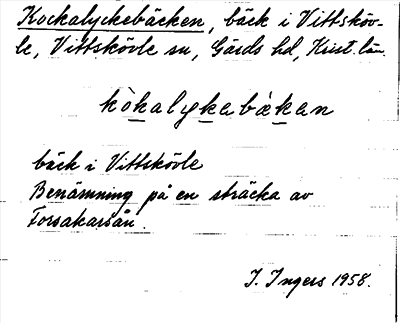 Kockalyckebäcken, bäck i Vittsköv-
le, Vittskövle sn, Gärds hd, Krist. län.
kòkalykabàkan
bäck i Vittskövle
Benämning på en sträcka av
Forsakarsån.
I. Ingers 1958.